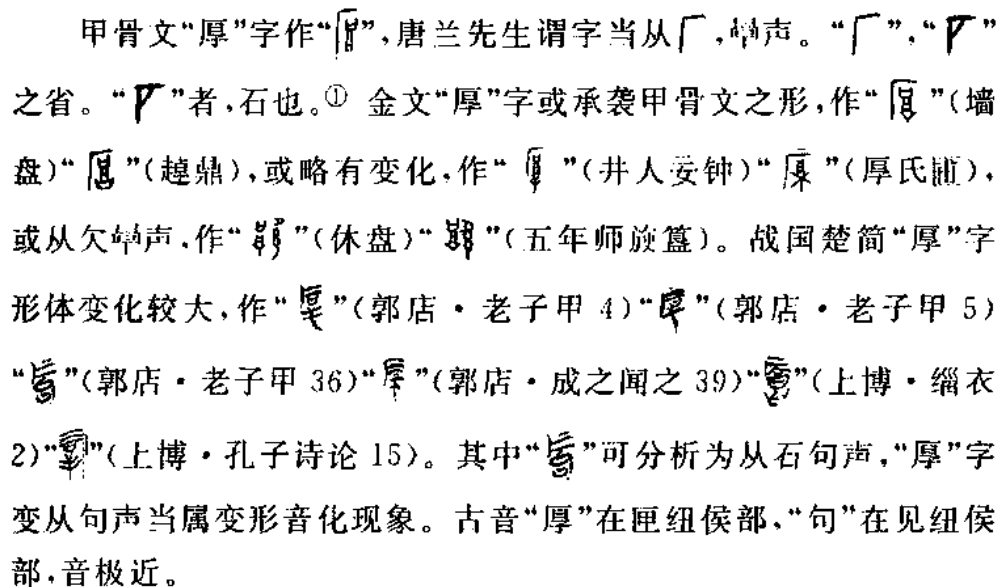 甲骨文“厚”字作“”,唐兰先生谓字当从厂,声。“厂”,“”
之省。“”者,石也。① 金文“厚”字或承袭甲骨文之形,作“”(墙
盘)“”(趠鼎),或略有变化,作“”(井人妄钟)“”(厚氏),
或从欠声,作“”(休盘)“”(五年师旋簋)。战国楚简“厚”字
形体变化较大,作“”(郭店·老子甲 4)“”(郭店·老子甲 5)
“”(郭店·老子甲 36)“”(郭店·成之闻之 39)“”(上博·缁衣
2)“”(上博·孔子诗论 15)。其中“”可分析为从石句声,“厚”字
变从句声当属变形音化现象。古音“厚”在匣纽侯部,“句”在见纽侯
部,音极近。